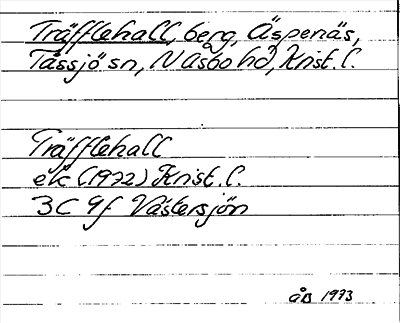 Träfflehall, berg, Äspenäs,
Tåssjö sn, N Åsbo hd, Krist. l.
Träfflehall
ek (1972) Krist. l.
3C 9f Västersjön
ÅB 1973